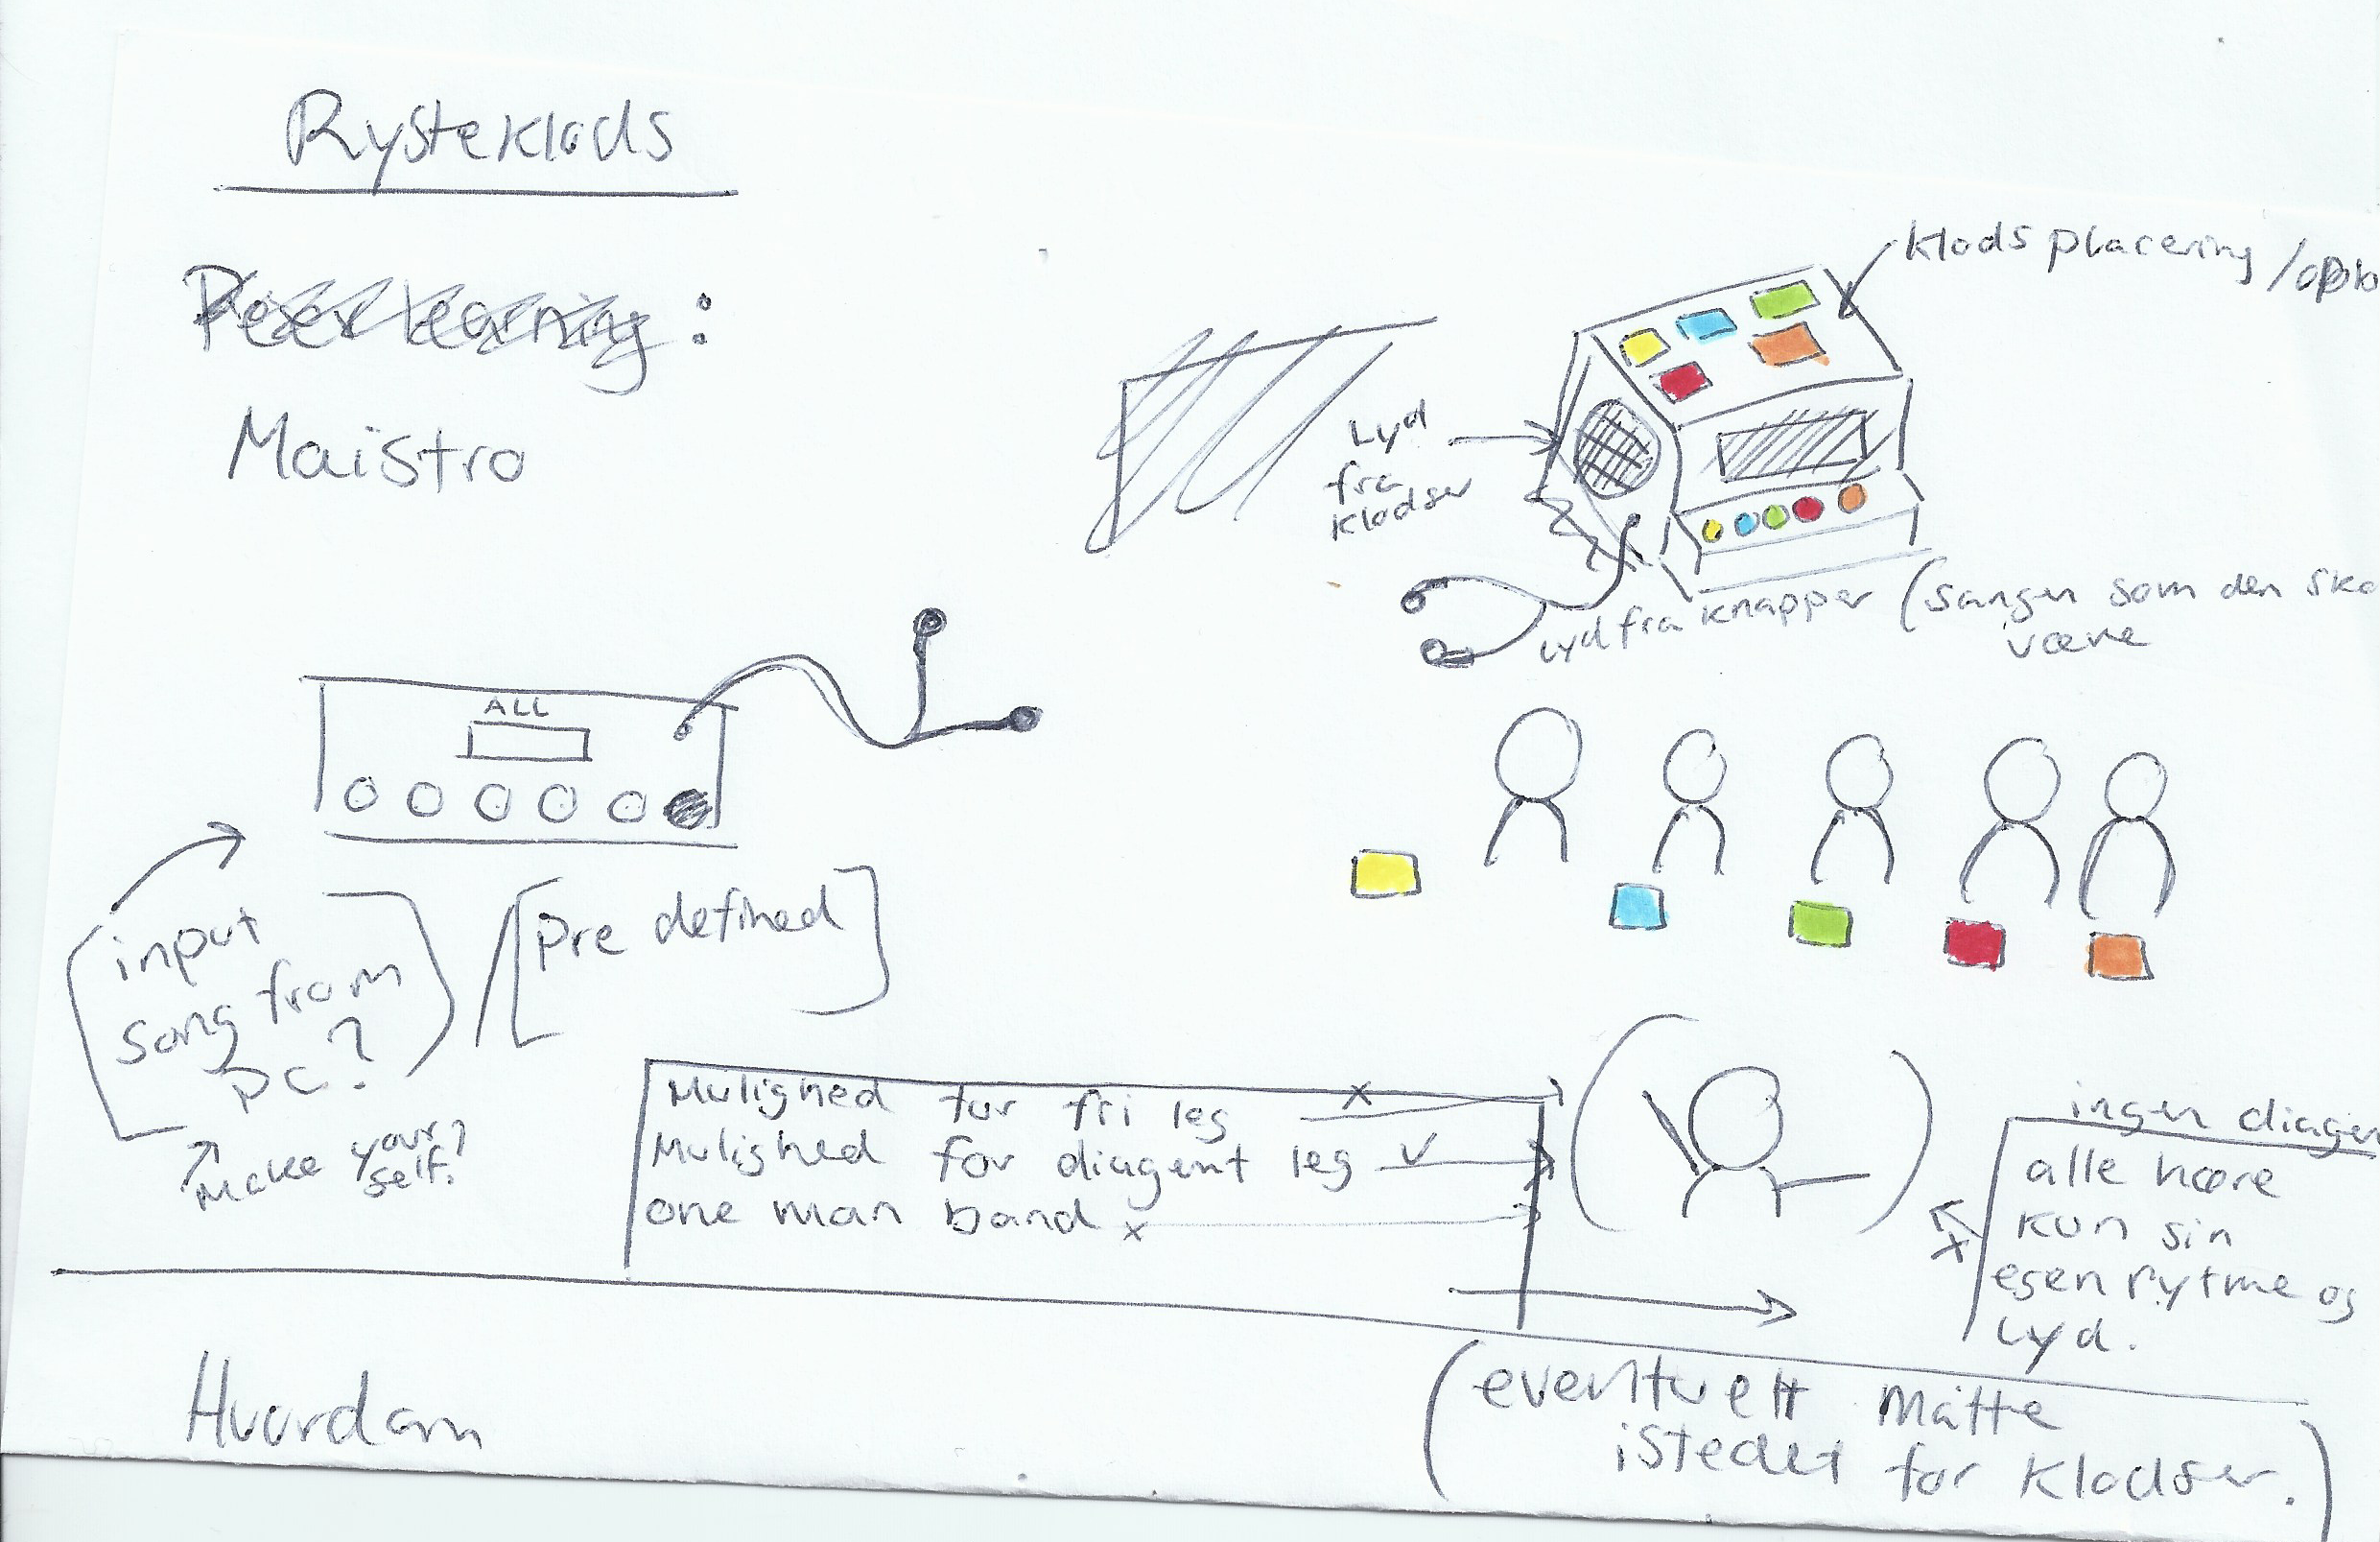 Rysteklods
Peer learning:
Maistro
Klods placering /oplo
Lyd
fra
Klodser
Lyd fra knapper (Sangen som den ska
være
ALL
input
song from
pc?
/[Pre defined]
make your
self?
Mulighed for fri leg x
Mulighed for diagent leg v
one man band x
ingen diagen
alle høre
kun sin
egen rytme og
Lyd.
x
Hvordan
(eventuelt Måtte
istedet for klodser.)